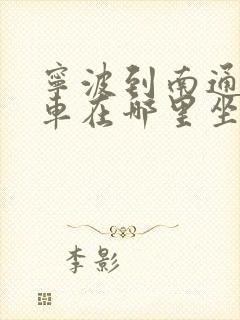 寧波到南通
車在哪里坐
李影